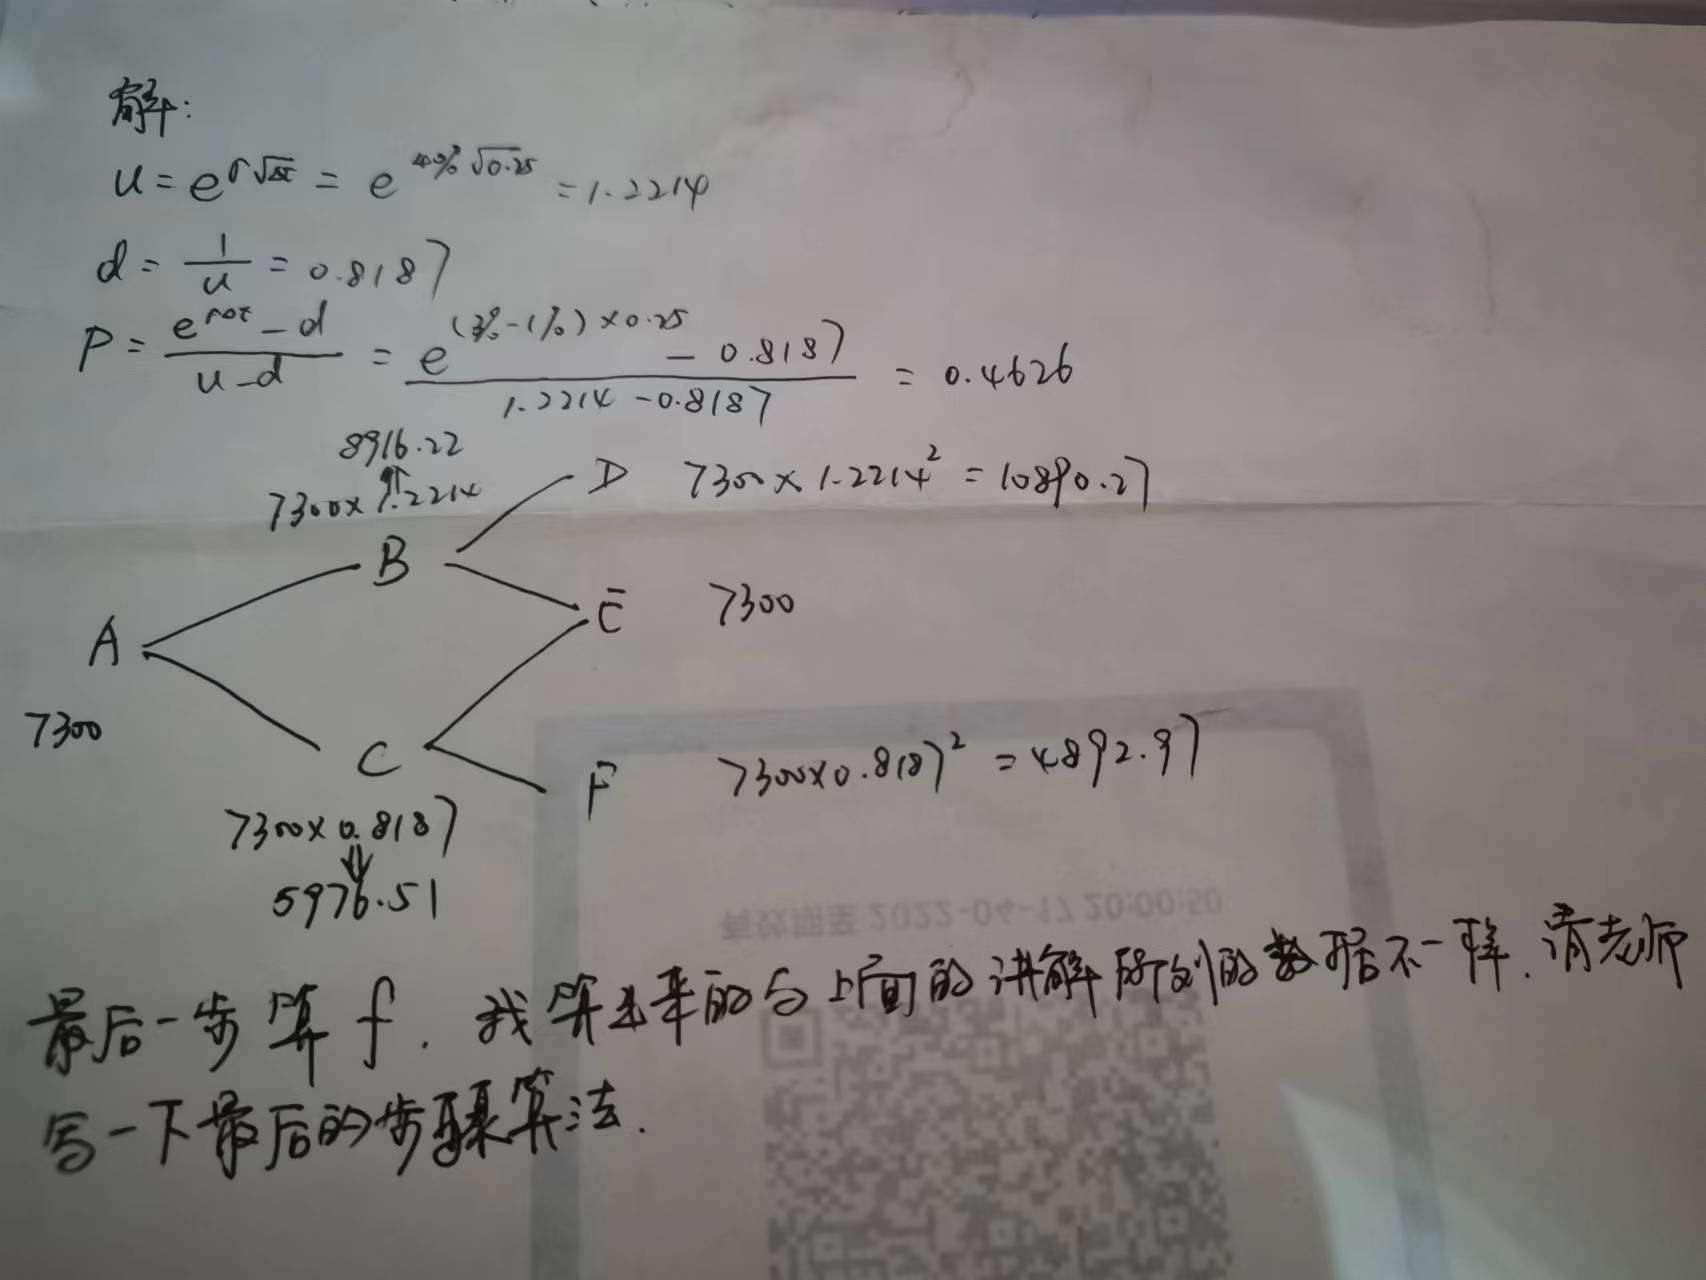 解:
u = e^σ√Δt = e^40%√0.25 = 1.2214
d = 1/u = 0.8187
P = (e^rΔt - d)/(u-d) = (e^(3%-1%)×0.25 - 0.8187)/(1.2214-0.8187) = 0.4626
8916.22
⇑
7300×1.2214
D 7300×1.2214² = 10890.27
B
E 7300
A
7300
C
F 7300×0.8187² = 4892.97
7300×0.8187
⇓
5976.51
有效期至 2022-04-17 20:00:50
最后一步算f. 我算出来的与上面的讲解所列的数据不一样. 请老师
写一下最后的步骤算法.